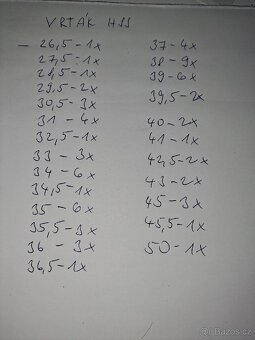 VRTÁK HSS
- 26,5-1x
27,5-1x
28,5-1x
29,5-2x
30,5-3x
31 - 4x
32,5-1x
33 - 3x
34 - 6x
34,5-1x
35 - 6x
35,5-3x
36 - 3x
36,5-1x
37-4x
38-9x
39-6x
39,5-2x
40-2x
41-1x
42,5-2x
43-2x
45-3x
45,5-1x
50-1x
Bazos.cz